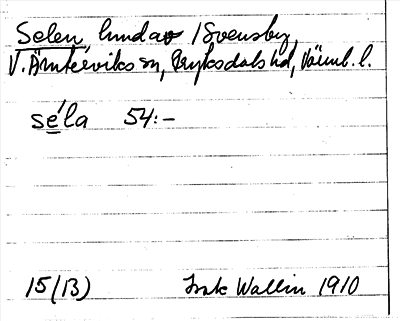 Selen, lunda /Svensby,
V. Ämterviks sn, Fryksdals hd, Värml. l.
séla 54:-
15(B) Isak Wallin 1910